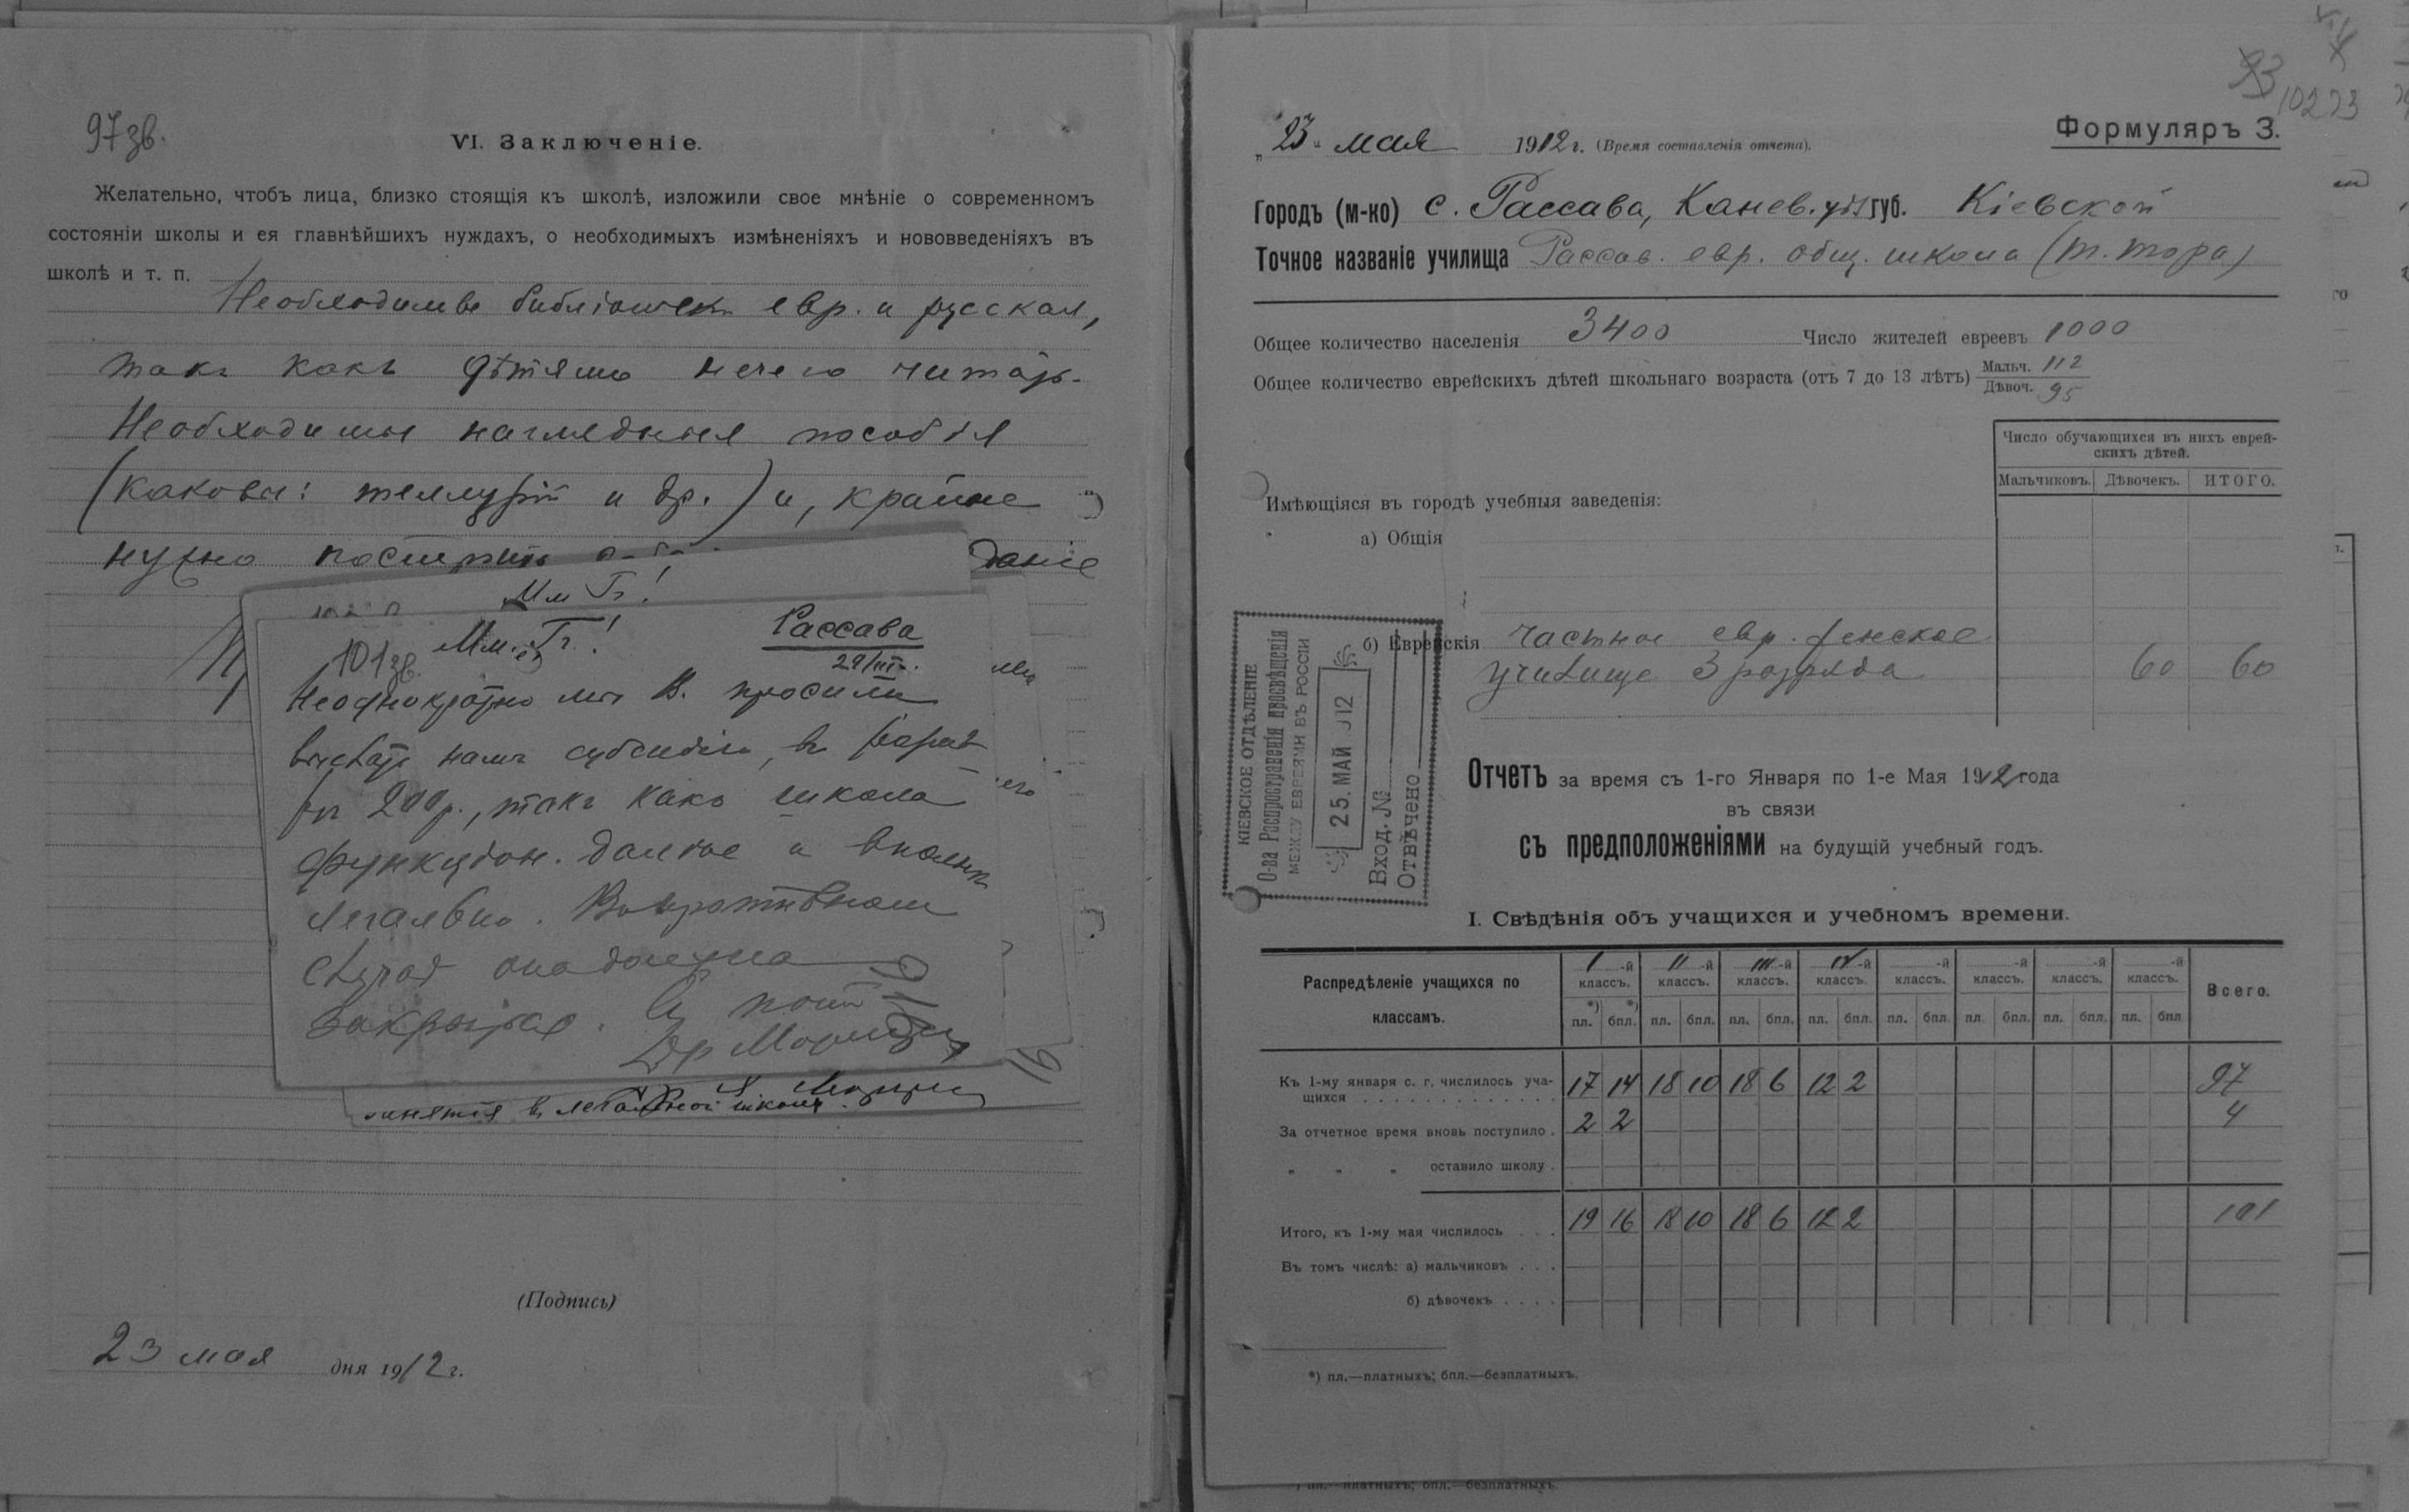 97 зв.
VI. Заключеніе.
Желательно, чтобъ лица, близко стоящія къ школѣ, изложили свое мнѣніе о современномъ
состояніи школы и ея главнѣйшихъ нуждахъ, о необходимыхъ измѣненіяхъ и нововведеніяхъ въ
школѣ и т. п.
евр. и русская,
такъ какъ дѣтямъ нечего читать.
Необходимы наглядныя пособія
(каковы: теллурій и др.) и, крайне
нужно
Мм Гг!
101 зв. Мм. Гг.!
Рассава
Неоднократно мы В. просили
выслать намъ субсидію, въ размѣ-
рѣ 200 р., такъ какъ школа
функціон. далѣе и вполнѣ
легально. Въ противномъ
случаѣ она должна
закрыться.
занятія в легальной школѣ.
(Подпись)
23 мая дня 1912 г.
10223
Формуляръ 3.
„23“ мая 1912 г. (Время составленія отчета).
Городъ (м-ко) с. Рассава, Канев. уѣз. губ. Кіевской
Точное названіе училища Рассав. евр. общ. школа (т. тора)
Общее количество населенія 3400 Число жителей евреевъ 1000
Общее количество еврейскихъ дѣтей школьнаго возраста (отъ 7 до 13 лѣтъ) Мальч. 112
Дѣвоч. 95
Число обучающихся въ нихъ еврей-
скихъ дѣтей.
Мальчиковъ. Дѣвочекъ. ИТОГО.
Имѣющіяся въ городѣ учебныя заведенія:
а) Общія
б) Еврейскія частное евр. женское
училище 3 разряда 60 60
КІЕВСКОЕ ОТДѢЛЕНІЕ
О-ва Распространенія просвѣщенія
МЕЖДУ ЕВРЕЯМИ ВЪ РОССІИ
25. МАЙ 912
Вход. №
Отвѣчено
Отчетъ за время съ 1-го Января по 1-е Мая 1912 года
въ связи
съ предположеніями на будущій учебный годъ.
I. Свѣдѣнія объ учащихся и учебномъ времени.
Распредѣленіе учащихся по
классамъ.
I -й II -й III -й IV -й -й -й -й -й
классъ. классъ. классъ. классъ. классъ. классъ. классъ. классъ.
Всего.
*) *)
пл. бпл. пл. бпл. пл. бпл. пл. бпл. пл. бпл. пл. бпл. пл. бпл. пл. бпл
Къ 1-му января с. г. числилось уча-
щихся . . . . . . . . . . . . . 17 14 18 10 18 6 12 2 97
За отчетное время вновь поступило . 2 2 4
„ „ „ оставило школу .
Итого, къ 1-му мая числилось . . . 19 16 18 10 18 6 12 2 101
Въ томъ числѣ: а) мальчиковъ . . .
б) дѣвочекъ . . . .
*) пл.—платныхъ; бпл.—безплатныхъ.
*) пл.—платныхъ; бпл.—безплатныхъ.